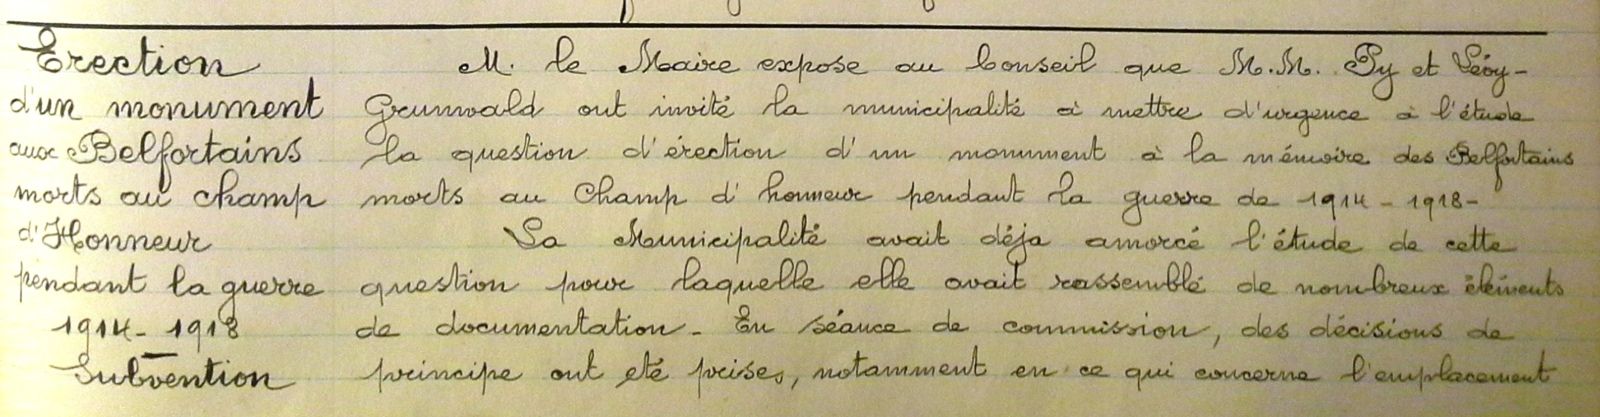 Erection
d'un monument
aux Belfortains
morts au champ
d'Honneur
pendant la guerre
1914-1918
Subvention
M. le Maire expose au Conseil que M.M. Py et Lévy-
Grunwald ont invité la municipalité à mettre d'urgence à l'étude
la question d'érection d'un monument à la mémoire des Belfortains
morts au Champ d'honneur pendant la guerre de 1914-1918-
La Municipalité avait déja amorcé l'étude de cette
question pour laquelle elle avait rassemblé de nombreux éléments
de documentation. En séance de commission, des décisions de
principe ont été prises, notamment en ce qui concerne l'emplacement